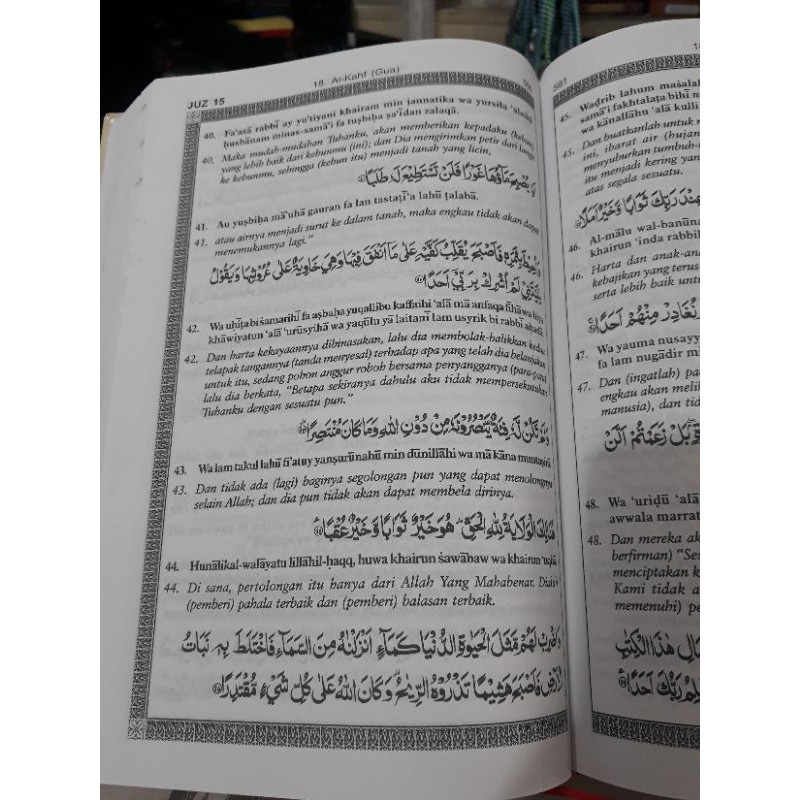 JUZ 15
18. Al-Kahf (Gua)
40. Fa'asā rabbī ay yu'tiyani khairam min jannatika wa yursila 'alaihā
ḥusbānam minas-samā'i fa tuṣbiḥa ṣa'īdan zalaqā.
40. Maka mudah-mudahan Tuhanku, akan memberikan kepadaku (kebun)
yang lebih baik dari kebunmu (ini); dan Dia mengirimkan petir dari langit
ke kebunmu, sehingga (kebun itu) menjadi tanah yang licin,
يُصْبِحَ مَاۤؤُهَا غَوْرًا فَلَنْ تَسْتَطِيْعَ لَهٗ طَلَبًا
41. Au yuṣbiḥa mā'uhā gauran fa lan tastaṭī'a lahū ṭalabā.
41. atau airnya menjadi surut ke dalam tanah, maka engkau tidak akan dapat
menemukannya lagi."
بِثَمَرِهٖ فَاَصْبَحَ يُقَلِّبُ كَفَّيْهِ عَلٰى مَآ اَنْفَقَ فِيْهَا وَهِيَ خَاوِيَةٌ عَلٰى عُرُوْشِهَا وَيَقُوْلُ
يٰلَيْتَنِيْ لَمْ اُشْرِكْ بِرَبِّيْٓ اَحَدًا
42. Wa uḥīṭa biṡamarihī fa aṣbaḥa yuqallibu kaffaihi 'alā mā anfaqa fīhā wa hiya
khāwiyatun 'alā 'urūsyihā wa yaqūlu yā laitanī lam usyrik bi rabbī aḥadā.
42. Dan harta kekayaannya dibinasakan, lalu dia membolak-balikkan kedua
telapak tangannya (tanda menyesal) terhadap apa yang telah dia belanjakan
untuk itu, sedang pohon anggur roboh bersama penyangganya (para-para)
lalu dia berkata, "Betapa sekiranya dahulu aku tidak mempersekutukan
Tuhanku dengan sesuatu pun."
وَلَمْ تَكُنْ لَّهٗ فِئَةٌ يَّنْصُرُوْنَهٗ مِنْ دُوْنِ اللّٰهِ وَمَا كَانَ مُنْتَصِرًا
43. Wa lam takul lahū fi'atuy yanṣurūnahū min dūnillāhi wa mā kāna muntaṣirā.
43. Dan tidak ada (lagi) baginya segolongan pun yang dapat menolongnya
selain Allah; dan dia pun tidak akan dapat membela dirinya.
هُنَالِكَ الْوَلَايَةُ لِلّٰهِ الْحَقِّۗ هُوَ خَيْرٌ ثَوَابًا وَّخَيْرٌ عُقْبًا
44. Hunālikal-walāyatu lillāhil-ḥaqq, huwa khairun ṡawābaw wa khairun 'uqbā.
44. Di sana, pertolongan itu hanya dari Allah Yang Mahabenar. Dialah
(pemberi) pahala terbaik dan (pemberi) balasan terbaik.
وَاضْرِبْ لَهُمْ مَّثَلَ الْحَيٰوةِ الدُّنْيَا كَمَاۤءٍ اَنْزَلْنٰهُ مِنَ السَّمَاۤءِ فَاخْتَلَطَ بِهٖ نَبَاتُ
الْاَرْضِ فَاَصْبَحَ هَشِيْمًا تَذْرُوْهُ الرِّيٰحُۗ وَكَانَ اللّٰهُ عَلٰى كُلِّ شَيْءٍ مُّقْتَدِرًا
591
45. Waḍrib lahum maṡalal
samā'i fakhtalaṭa bihī n
wa kānallāhu 'alā kulli
45. Dan buatkanlah untuk
ini, ibarat air (hujan)
menyuburkan tumbuh-
itu menjadi kering yang
atas segala sesuatu.
عِنْدَ رَبِّكَ ثَوَابًا وَّخَيْرٌ اَمَلًا
46. Al-mālu wal-banūna
khairun 'inda rabbik
46. Harta dan anak-an
kebajikan yang terus
serta lebih baik untu
نُغَادِرْ مِنْهُمْ اَحَدًا
47. Wa yauma nusayy
fa lam nugādir mi
47. Dan (ingatlah) pa
engkau akan meli
manusia), dan tid
بَلْ زَعَمْتُمْ اَلَّنْ
48. Wa 'uriḍū 'alā
awwala marrat
48. Dan mereka ak
berfirman) "Ses
menciptakan k
Kami tidak a
memenuhi) pe
مَالِ هٰذَا الْكِتٰبِ
رَبُّكَ اَحَدًا